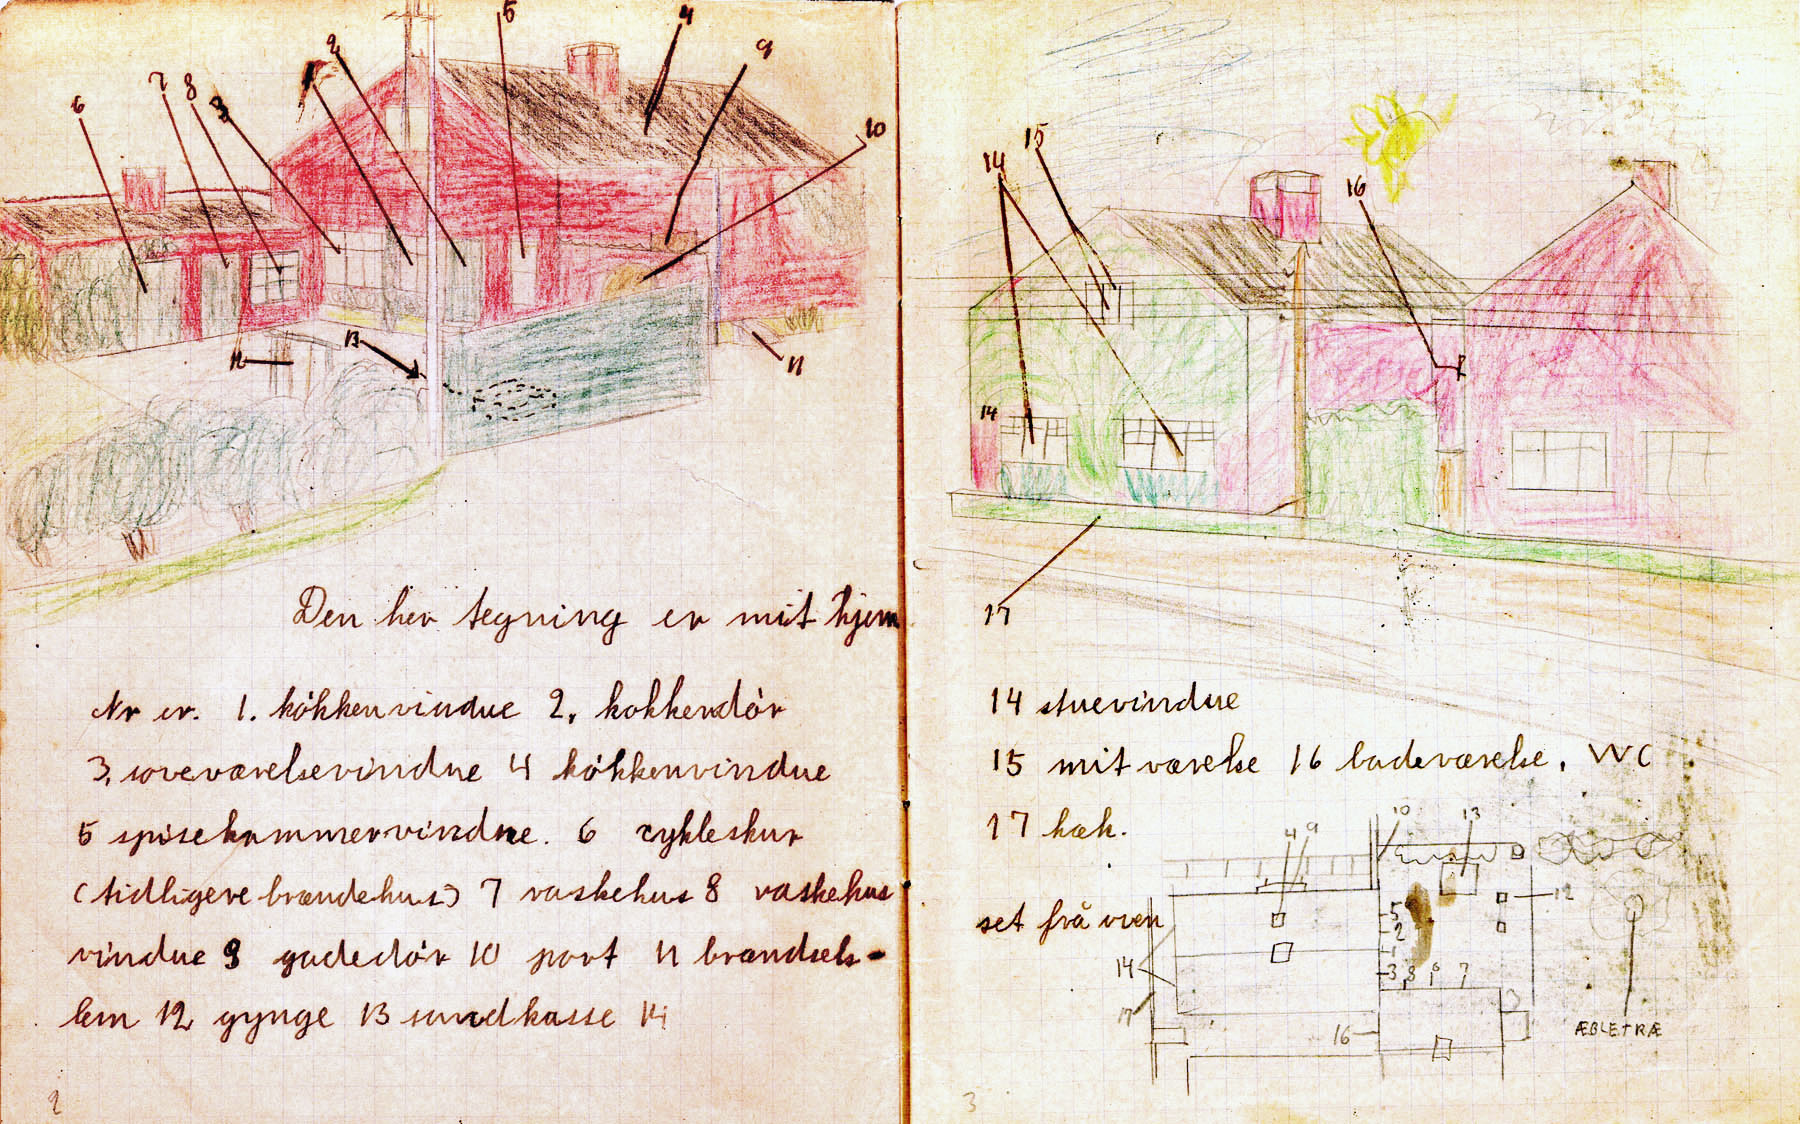 5 4
2 9
7 8 3 1
6 10
12 13 11
Den her tegning er mit hjem
Nr er. 1. kökkenvindue 2. kokkendör
3, soveværelsevindue 4 kökkenvindue
5 spisekammervindue. 6 cykleskur
(tidligere brændehus) 7 vaskehus 8 vaskehus
vindue 9 gadedör 10 port 11 brændsels-
lem 12 gynge 13 sandkasse 14
2
15
14
16
14
17
14 stuevindue
15 mit værelse 16 badeværelse, WC
17 hæk.
4 9 10 13
set frå oven
5
2
1
3 8 6 7
12
14
17
16
ÆBLETRÆ
3